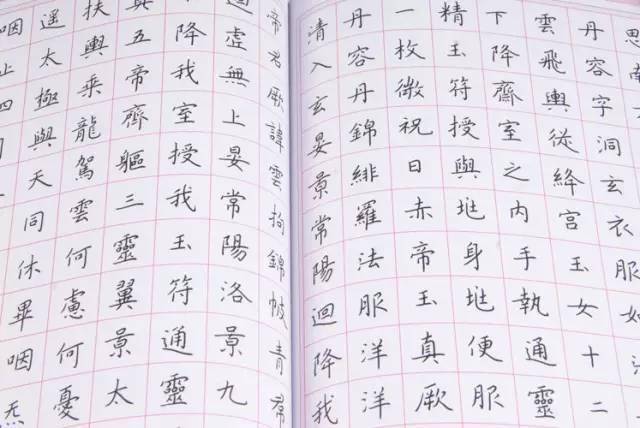 思南
丹容字洞玄衣服如
雲飛輿從絳宮玉女十二
下降齋室之內手執通靈
精玉符授與身便服
一枚微祝日赤帝玉真厥
丹容丹錦緋羅法服洋洋
清入玄晏景常陽迴降我
帝君厥諱雲拘錦帔青帬
虛無上晏常陽洛景九
降我室授我玉符通靈
真五帝齊軀三靈翼景太
扶輿乘龍駕雲何慮何憂
遥太極與天同休畢咽炁
咽止四